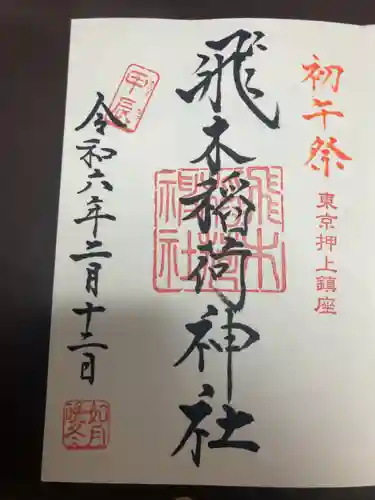 初午祭
東京押上鎮座
飛木稲荷神社
飛木稲荷神社
甲辰
令和六年二月十二日
如月